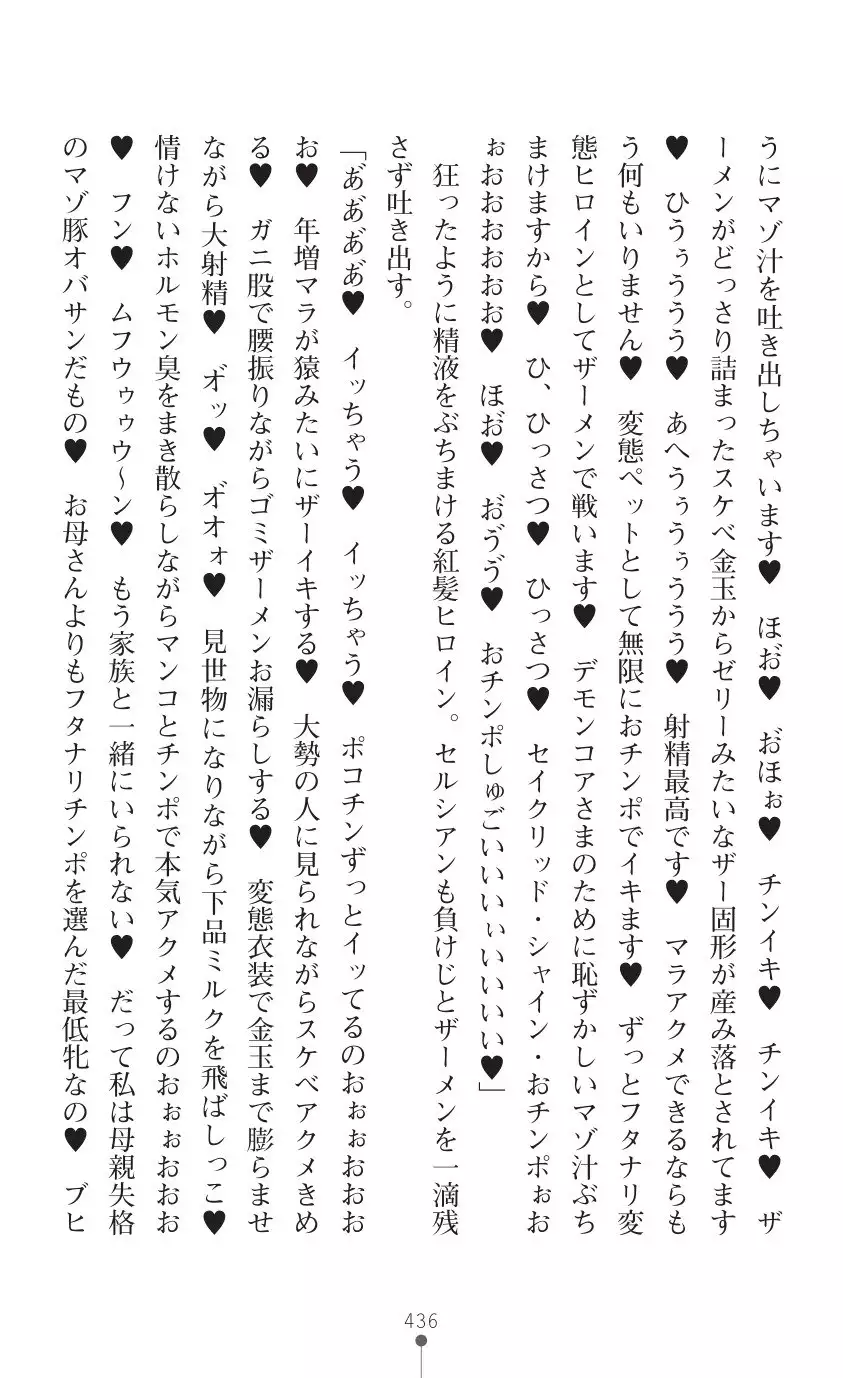 うにマゾ汁を吐き出しちゃいます♥　ほお゛♥　お゛ほぉ♥　チンイキ♥　チンイキ♥　ザ
ーメンがどっさり詰まったスケベ金玉からゼリーみたいなザー固形が産み落とされてます
♥　ひうぅううう♥　あへうぅうぅううう♥　射精最高です♥　マラアクメできるならも
う何もいりません♥　変態ペットとして無限におチンポでイキます♥　ずっとフタナリ変
態ヒロインとしてザーメンで戦います♥　デモンコアさまのために恥ずかしいマゾ汁ぶち
まけますから♥　ひ、ひっさつ♥　ひっさつ♥　セイクリッド・シャイン・おチンポぉお
ぉおおおおおお♥　ほお゛♥　お゛う゛う゛♥　おチンポしゅごいいいぃいいいい♥」
　狂ったように精液をぶちまける紅髪ヒロイン。セルシアンも負けじとザーメンを一滴残
さず吐き出す。
「あ゛あ゛あ゛あ゛♥　イッちゃう♥　イッちゃう♥　ポコチンずっとイッてるのおぉぉおおお
お♥　年増マラが猿みたいにザーイキする♥　大勢の人に見られながらスケベアクメきめ
る♥　ガニ股で腰振りながらゴミザーメンお漏らしする♥　変態衣装で金玉まで膨らませ
ながら大射精♥　オ゛ッ♥　オ゛オォ♥　見世物になりながら下品ミルクを飛ばしっこ♥
情けないホルモン臭をまき散らしながらマンコとチンポで本気アクメするのおぉぉおおお
♥　フン♥　ムフウゥゥウ～ン♥　もう家族と一緒にいられない♥　だって私は母親失格
のマゾ豚オバサンだもの♥　お母さんよりもフタナリチンポを選んだ最低牝なの♥　ブヒ
436